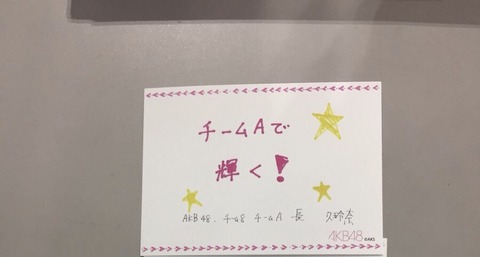 チームAで
輝く!
AKB48. チーム8 チームA 長 久玲奈
AKB48 ©AKS